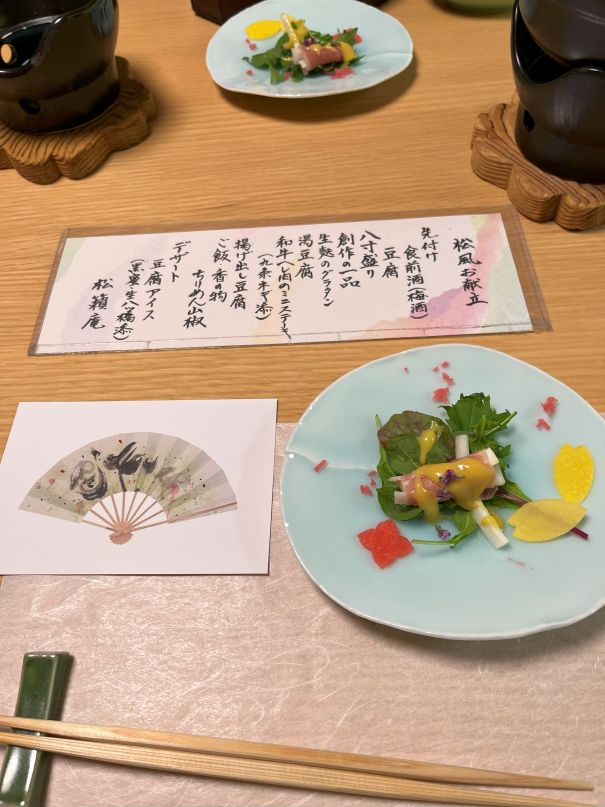 松風お献立
先付け
食前酒(梅酒)
豆腐
八寸盛り
創作の一品
生麩のグラタン
湯豆腐
和牛ヘレ肉のミニステーキ
(九条ネギ添)
揚げ出し豆腐
ご飯・香の物
ちりめん山椒
デザート
豆腐アイス
(黒蜜・生八橋添)
松籟庵